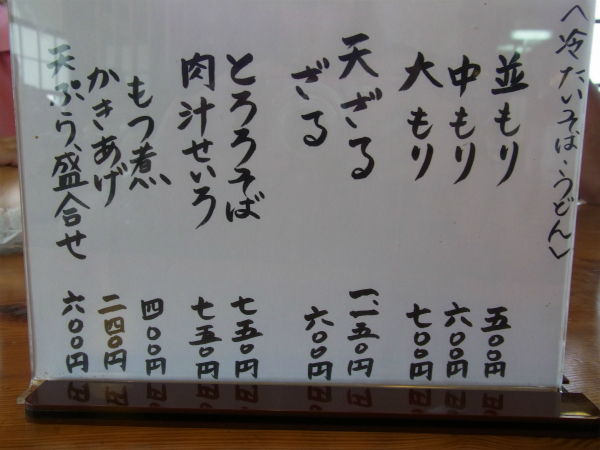 〈冷たいそば・うどん〉
並もり 五〇〇円
中もり 六〇〇円
大もり 七〇〇円
天ざる 一、一五〇円
ざる 六〇〇円
とろろそば 七五〇円
肉汁せいろ 七五〇円
もつ煮 四〇〇円
かきあげ 二四〇円
天ぷら盛合せ 六〇〇円